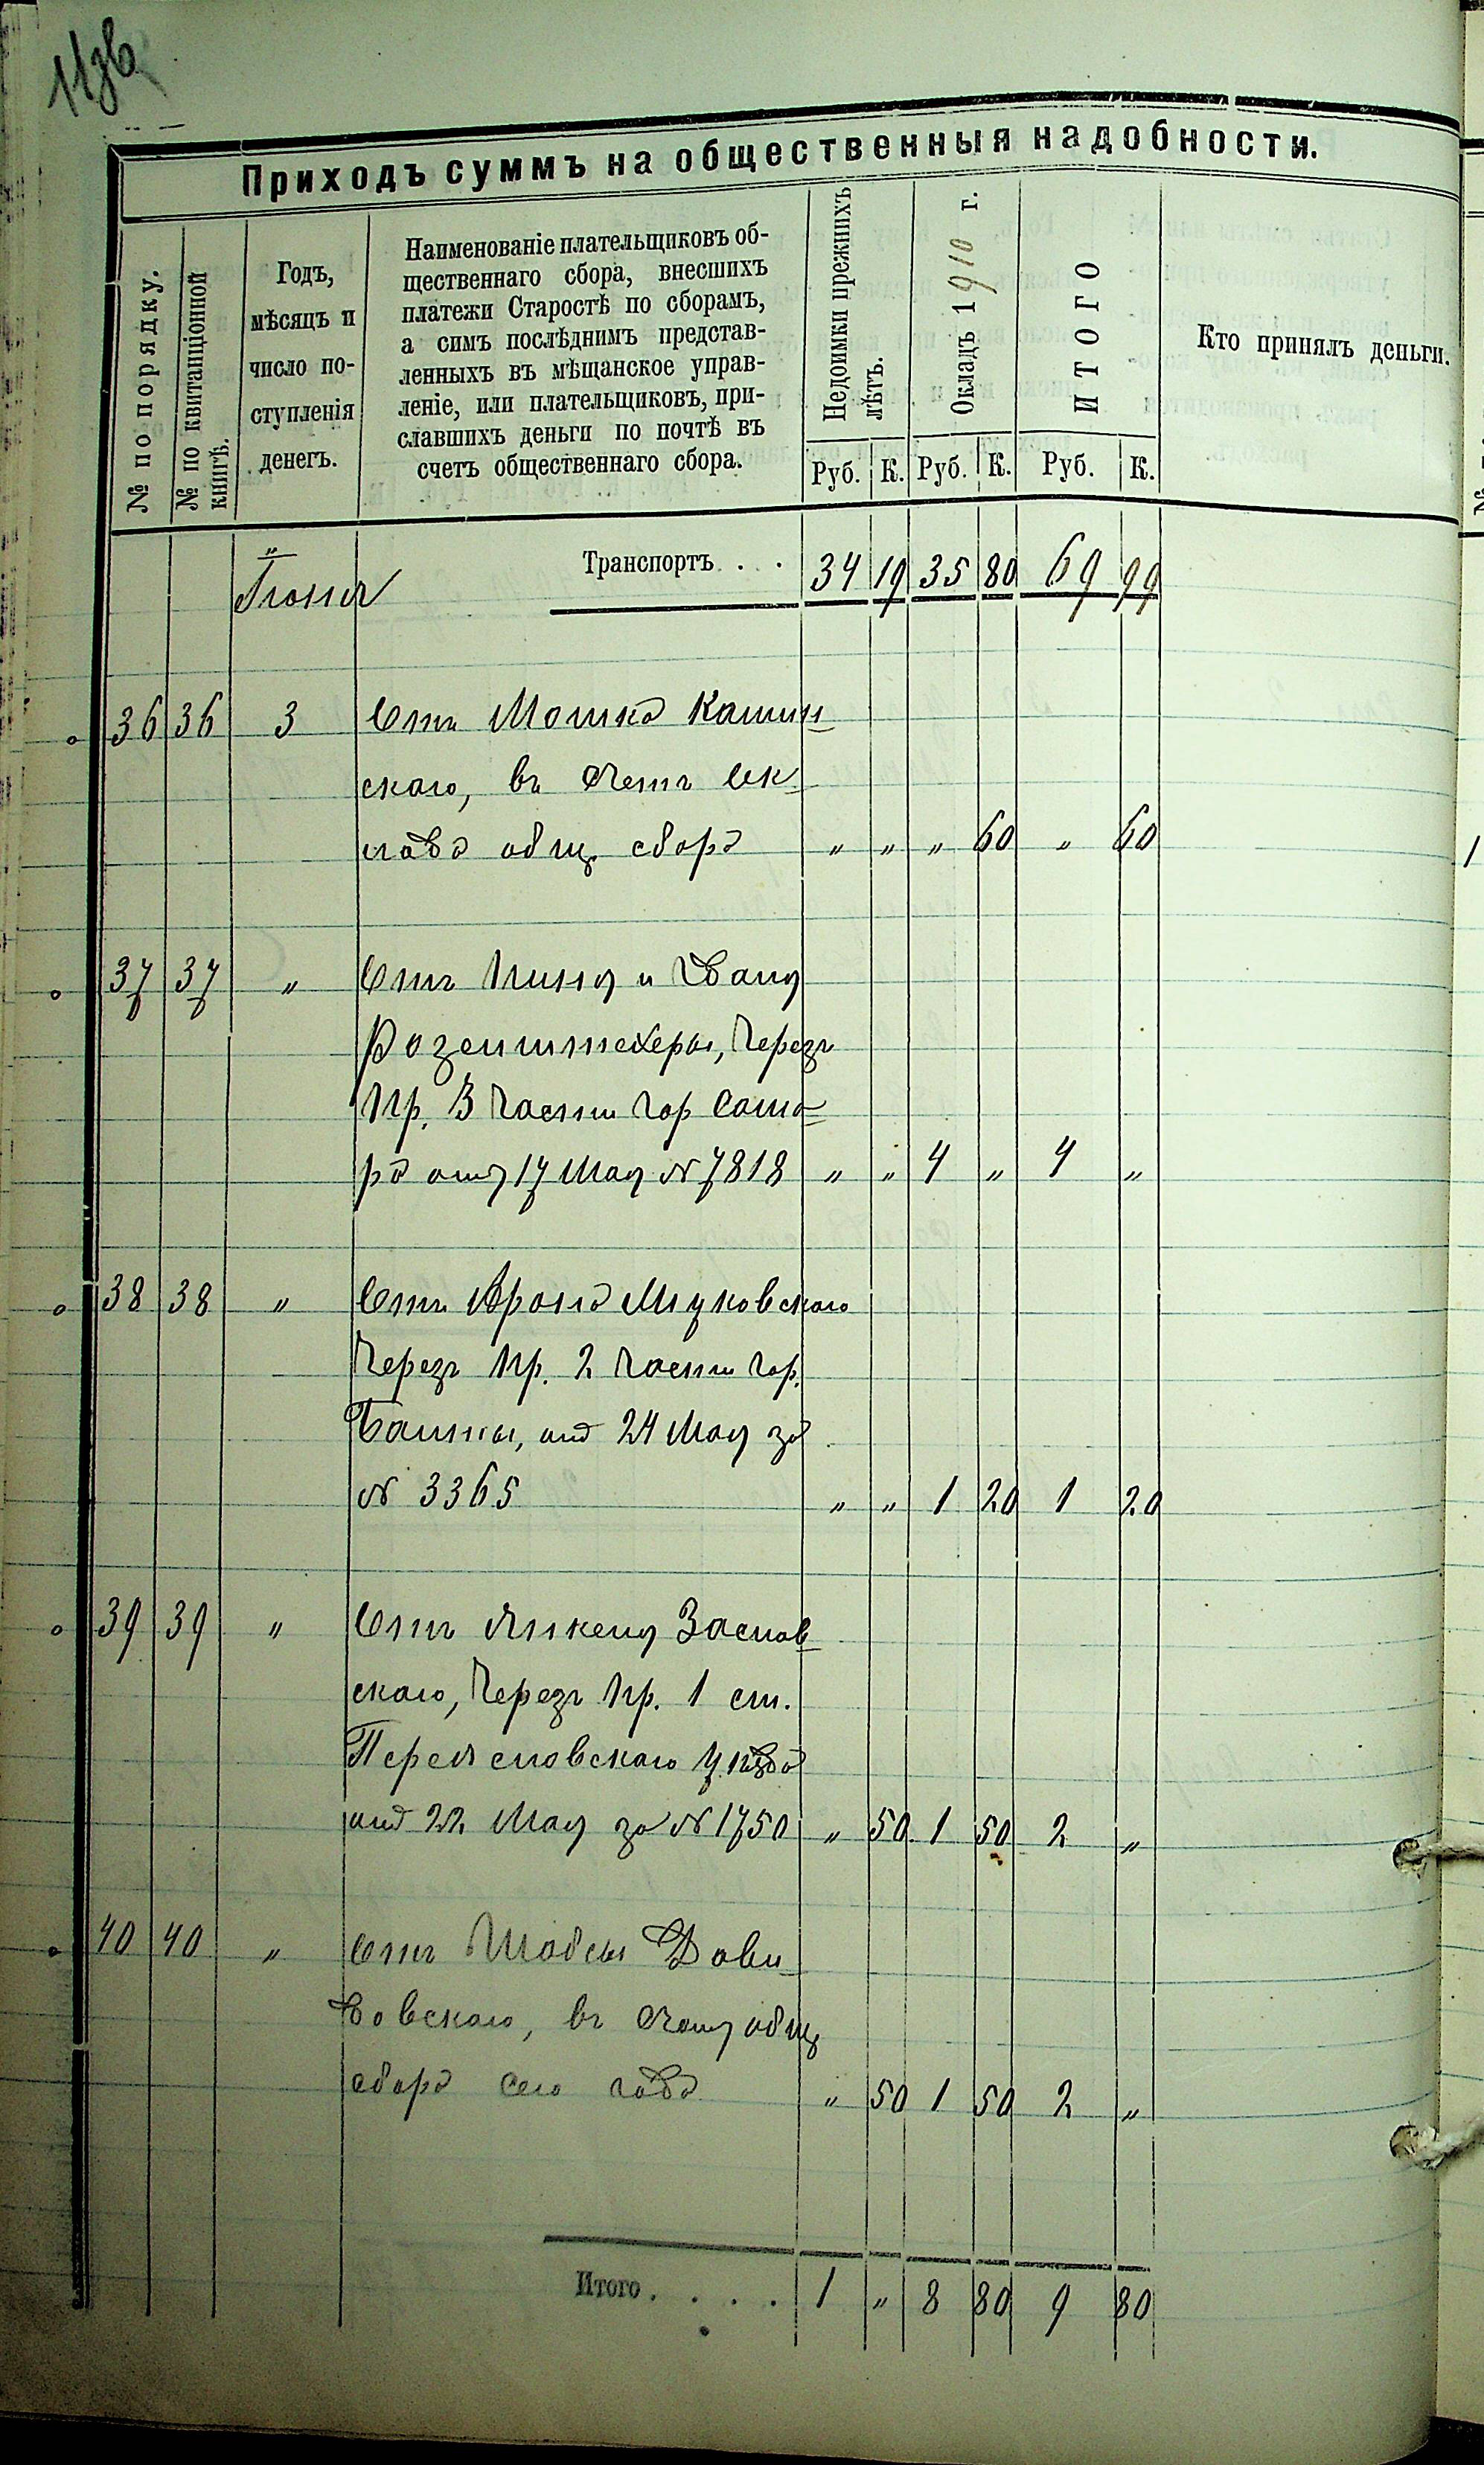 11 зв
Приходъ суммъ на общественныя надобности.
№ по порядку.
№ по квитанціонной книгѣ.
Годъ,
мѣсяцъ и
число по-
ступленія
денегъ.
Наименованіе плательщиковъ об-
щественнаго сбора, внесшихъ
платежи Старостѣ по сборамъ,
а симъ послѣднимъ представ-
ленныхъ въ мѣщанское управ-
леніе, или плательщиковъ, при-
славшихъ деньги по почтѣ въ
счетъ общественнаго сбора.
Недоимки прежнихъ
лѣтъ.
Окладъ 1910 г.
ИТОГО
Кто принялъ деньги.
Руб. К. Руб. К. Руб. К.
Транспортъ . . 34 19 35 80 69 99
Іюня
36 36 3 Отъ Мошка Камин
скаго, въ счетъ ок
лада общ. сбора " " " 60 " 60
37 37 " Отъ и
Розенштехеры, Черезъ
Пр. 3 части гор Сама
ра отъ 17 Мая № 7818 " " 4 " 4 "
38 38 " Отъ Арона
Черезъ Пр. 2 части гор.
24 Мая за
№ 3365 " " 1 20 1 20
39 39 " Отъ Заслав
скаго, Черезъ Пр. 1 ст.
Переяславскаго уѣзда
отъ 22 Мая за № 1750 " 50 1 50 2 "
40 40 " Отъ Дави
довскаго, въ счетъ общ
сбора сего года " 50 1 50 2 "
Итого . . . . 1 " 8 80 9 80